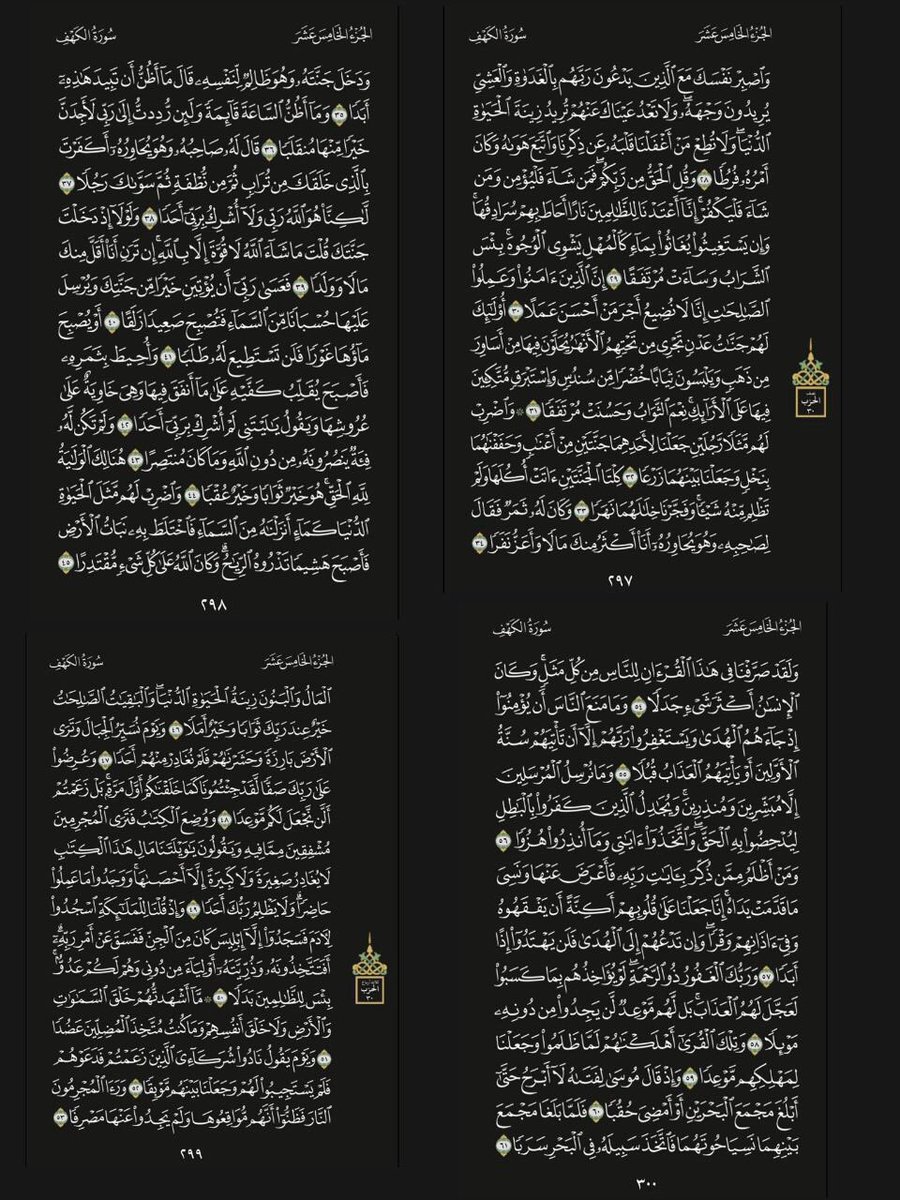 الجُزْءُ الخَامِسَ عَشَرَ سُورَةُ الكَهْفِ
وَٱصْبِرْ نَفْسَكَ مَعَ ٱلَّذِينَ يَدْعُونَ رَبَّهُم بِٱلْغَدَوٰةِ وَٱلْعَشِىِّ
يُرِيدُونَ وَجْهَهُۥ ۖ وَلَا تَعْدُ عَيْنَاكَ عَنْهُمْ تُرِيدُ زِينَةَ ٱلْحَيَوٰةِ
ٱلدُّنْيَا ۖ وَلَا تُطِعْ مَنْ أَغْفَلْنَا قَلْبَهُۥ عَن ذِكْرِنَا وَٱتَّبَعَ هَوَىٰهُ وَكَانَ
أَمْرُهُۥ فُرُطًا ٢٨ وَقُلِ ٱلْحَقُّ مِن رَّبِّكُمْ ۖ فَمَن شَآءَ فَلْيُؤْمِن وَمَن
شَآءَ فَلْيَكْفُرْ ۚ إِنَّآ أَعْتَدْنَا لِلظَّٰلِمِينَ نَارًا أَحَاطَ بِهِمْ سُرَادِقُهَا ۚ
وَإِن يَسْتَغِيثُوا۟ يُغَاثُوا۟ بِمَآءٍ كَٱلْمُهْلِ يَشْوِى ٱلْوُجُوهَ ۚ بِئْسَ
ٱلشَّرَابُ وَسَآءَتْ مُرْتَفَقًا ٢٩ إِنَّ ٱلَّذِينَ ءَامَنُوا۟ وَعَمِلُوا۟
ٱلصَّٰلِحَٰتِ إِنَّا لَا نُضِيعُ أَجْرَ مَنْ أَحْسَنَ عَمَلًا ٣٠ أُو۟لَٰٓئِكَ
لَهُمْ جَنَّٰتُ عَدْنٍ تَجْرِى مِن تَحْتِهِمُ ٱلْأَنْهَٰرُ يُحَلَّوْنَ فِيهَا مِنْ أَسَاوِرَ
مِن ذَهَبٍ وَيَلْبَسُونَ ثِيَابًا خُضْرًا مِّن سُندُسٍ وَإِسْتَبْرَقٍ مُّتَّكِـِٔينَ
فِيهَا عَلَى ٱلْأَرَآئِكِ ۚ نِعْمَ ٱلثَّوَابُ وَحَسُنَتْ مُرْتَفَقًا ٣١ ۞ وَٱضْرِبْ
لَهُم مَّثَلًا رَّجُلَيْنِ جَعَلْنَا لِأَحَدِهِمَا جَنَّتَيْنِ مِنْ أَعْنَٰبٍ وَحَفَفْنَٰهُمَا
بِنَخْلٍ وَجَعَلْنَا بَيْنَهُمَا زَرْعًا ٣٢ كِلْتَا ٱلْجَنَّتَيْنِ ءَاتَتْ أُكُلَهَا وَلَمْ
تَظْلِم مِّنْهُ شَيْـًٔا ۚ وَفَجَّرْنَا خِلَٰلَهُمَا نَهَرًا ٣٣ وَكَانَ لَهُۥ ثَمَرٌ فَقَالَ
لِصَٰحِبِهِۦ وَهُوَ يُحَاوِرُهُۥٓ أَنَا۠ أَكْثَرُ مِنكَ مَالًا وَأَعَزُّ نَفَرًا ٣٤
الحِزْب
٣٠
٢٩٧
الجُزْءُ الخَامِسَ عَشَرَ سُورَةُ الكَهْفِ
وَدَخَلَ جَنَّتَهُۥ وَهُوَ ظَالِمٌ لِّنَفْسِهِۦ قَالَ مَآ أَظُنُّ أَن تَبِيدَ هَٰذِهِۦٓ
أَبَدًا ٣٥ وَمَآ أَظُنُّ ٱلسَّاعَةَ قَآئِمَةً وَلَئِن رُّدِدتُّ إِلَىٰ رَبِّى لَأَجِدَنَّ
خَيْرًا مِّنْهَا مُنقَلَبًا ٣٦ قَالَ لَهُۥ صَاحِبُهُۥ وَهُوَ يُحَاوِرُهُۥٓ أَكَفَرْتَ
بِٱلَّذِى خَلَقَكَ مِن تُرَابٍ ثُمَّ مِن نُّطْفَةٍ ثُمَّ سَوَّىٰكَ رَجُلًا ٣٧
لَّٰكِنَّا۠ هُوَ ٱللَّهُ رَبِّى وَلَآ أُشْرِكُ بِرَبِّىٓ أَحَدًا ٣٨ وَلَوْلَآ إِذْ دَخَلْتَ
جَنَّتَكَ قُلْتَ مَا شَآءَ ٱللَّهُ لَا قُوَّةَ إِلَّا بِٱللَّهِ ۚ إِن تَرَنِ أَنَا۠ أَقَلَّ مِنكَ
مَالًا وَوَلَدًا ٣٩ فَعَسَىٰ رَبِّىٓ أَن يُؤْتِيَنِ خَيْرًا مِّن جَنَّتِكَ وَيُرْسِلَ
عَلَيْهَا حُسْبَانًا مِّنَ ٱلسَّمَآءِ فَتُصْبِحَ صَعِيدًا زَلَقًا ٤٠ أَوْ يُصْبِحَ
مَآؤُهَا غَوْرًا فَلَن تَسْتَطِيعَ لَهُۥ طَلَبًا ٤١ وَأُحِيطَ بِثَمَرِهِۦ
فَأَصْبَحَ يُقَلِّبُ كَفَّيْهِ عَلَىٰ مَآ أَنفَقَ فِيهَا وَهِىَ خَاوِيَةٌ عَلَىٰ
عُرُوشِهَا وَيَقُولُ يَٰلَيْتَنِى لَمْ أُشْرِكْ بِرَبِّىٓ أَحَدًا ٤٢ وَلَمْ تَكُن لَّهُۥ
فِئَةٌ يَنصُرُونَهُۥ مِن دُونِ ٱللَّهِ وَمَا كَانَ مُنتَصِرًا ٤٣ هُنَالِكَ ٱلْوَلَٰيَةُ
لِلَّهِ ٱلْحَقِّ ۚ هُوَ خَيْرٌ ثَوَابًا وَخَيْرٌ عُقْبًا ٤٤ وَٱضْرِبْ لَهُم مَّثَلَ ٱلْحَيَوٰةِ
ٱلدُّنْيَا كَمَآءٍ أَنزَلْنَٰهُ مِنَ ٱلسَّمَآءِ فَٱخْتَلَطَ بِهِۦ نَبَاتُ ٱلْأَرْضِ
فَأَصْبَحَ هَشِيمًا تَذْرُوهُ ٱلرِّيَٰحُ ۗ وَكَانَ ٱللَّهُ عَلَىٰ كُلِّ شَىْءٍ مُّقْتَدِرًا ٤٥
٢٩٨
الجُزْءُ الخَامِسَ عَشَرَ سُورَةُ الكَهْفِ
ٱلْمَالُ وَٱلْبَنُونَ زِينَةُ ٱلْحَيَوٰةِ ٱلدُّنْيَا ۖ وَٱلْبَٰقِيَٰتُ ٱلصَّٰلِحَٰتُ
خَيْرٌ عِندَ رَبِّكَ ثَوَابًا وَخَيْرٌ أَمَلًا ٤٦ وَيَوْمَ نُسَيِّرُ ٱلْجِبَالَ وَتَرَى
ٱلْأَرْضَ بَارِزَةً وَحَشَرْنَٰهُمْ فَلَمْ نُغَادِرْ مِنْهُمْ أَحَدًا ٤٧ وَعُرِضُوا۟
عَلَىٰ رَبِّكَ صَفًّا لَّقَدْ جِئْتُمُونَا كَمَا خَلَقْنَٰكُمْ أَوَّلَ مَرَّةٍۭ ۚ بَلْ زَعَمْتُمْ
أَلَّن نَّجْعَلَ لَكُم مَّوْعِدًا ٤٨ وَوُضِعَ ٱلْكِتَٰبُ فَتَرَى ٱلْمُجْرِمِينَ
مُشْفِقِينَ مِمَّا فِيهِ وَيَقُولُونَ يَٰوَيْلَتَنَا مَالِ هَٰذَا ٱلْكِتَٰبِ
لَا يُغَادِرُ صَغِيرَةً وَلَا كَبِيرَةً إِلَّآ أَحْصَىٰهَا ۚ وَوَجَدُوا۟ مَا عَمِلُوا۟
حَاضِرًا ۗ وَلَا يَظْلِمُ رَبُّكَ أَحَدًا ٤٩ وَإِذْ قُلْنَا لِلْمَلَٰٓئِكَةِ ٱسْجُدُوا۟
لِـَٔادَمَ فَسَجَدُوٓا۟ إِلَّآ إِبْلِيسَ كَانَ مِنَ ٱلْجِنِّ فَفَسَقَ عَنْ أَمْرِ رَبِّهِۦٓ ۗ
أَفَتَتَّخِذُونَهُۥ وَذُرِّيَّتَهُۥٓ أَوْلِيَآءَ مِن دُونِى وَهُمْ لَكُمْ عَدُوٌّۢ ۚ
بِئْسَ لِلظَّٰلِمِينَ بَدَلًا ٥٠ ۞ مَّآ أَشْهَدتُّهُمْ خَلْقَ ٱلسَّمَٰوَٰتِ
وَٱلْأَرْضِ وَلَا خَلْقَ أَنفُسِهِمْ وَمَا كُنتُ مُتَّخِذَ ٱلْمُضِلِّينَ عَضُدًا
٥١ وَيَوْمَ يَقُولُ نَادُوا۟ شُرَكَآءِىَ ٱلَّذِينَ زَعَمْتُمْ فَدَعَوْهُمْ
فَلَمْ يَسْتَجِيبُوا۟ لَهُمْ وَجَعَلْنَا بَيْنَهُم مَّوْبِقًا ٥٢ وَرَءَا ٱلْمُجْرِمُونَ
ٱلنَّارَ فَظَنُّوٓا۟ أَنَّهُم مُّوَاقِعُوهَا وَلَمْ يَجِدُوا۟ عَنْهَا مَصْرِفًا ٥٣
الحِزْب
٣٠
٢٩٩
الجُزْءُ الخَامِسَ عَشَرَ سُورَةُ الكَهْفِ
وَلَقَدْ صَرَّفْنَا فِى هَٰذَا ٱلْقُرْءَانِ لِلنَّاسِ مِن كُلِّ مَثَلٍ ۚ وَكَانَ
ٱلْإِنسَٰنُ أَكْثَرَ شَىْءٍ جَدَلًا ٥٤ وَمَا مَنَعَ ٱلنَّاسَ أَن يُؤْمِنُوٓا۟
إِذْ جَآءَهُمُ ٱلْهُدَىٰ وَيَسْتَغْفِرُوا۟ رَبَّهُمْ إِلَّآ أَن تَأْتِيَهُمْ سُنَّةُ
ٱلْأَوَّلِينَ أَوْ يَأْتِيَهُمُ ٱلْعَذَابُ قُبُلًا ٥٥ وَمَا نُرْسِلُ ٱلْمُرْسَلِينَ
إِلَّا مُبَشِّرِينَ وَمُنذِرِينَ ۚ وَيُجَٰدِلُ ٱلَّذِينَ كَفَرُوا۟ بِٱلْبَٰطِلِ
لِيُدْحِضُوا۟ بِهِ ٱلْحَقَّ ۖ وَٱتَّخَذُوٓا۟ ءَايَٰتِى وَمَآ أُنذِرُوا۟ هُزُوًا ٥٦
وَمَنْ أَظْلَمُ مِمَّن ذُكِّرَ بِـَٔايَٰتِ رَبِّهِۦ فَأَعْرَضَ عَنْهَا وَنَسِىَ
مَا قَدَّمَتْ يَدَاهُ ۚ إِنَّا جَعَلْنَا عَلَىٰ قُلُوبِهِمْ أَكِنَّةً أَن يَفْقَهُوهُ
وَفِىٓ ءَاذَانِهِمْ وَقْرًا ۖ وَإِن تَدْعُهُمْ إِلَى ٱلْهُدَىٰ فَلَن يَهْتَدُوٓا۟ إِذًا
أَبَدًا ٥٧ وَرَبُّكَ ٱلْغَفُورُ ذُو ٱلرَّحْمَةِ ۖ لَوْ يُؤَاخِذُهُم بِمَا كَسَبُوا۟
لَعَجَّلَ لَهُمُ ٱلْعَذَابَ ۚ بَل لَّهُم مَّوْعِدٌ لَّن يَجِدُوا۟ مِن دُونِهِۦ
مَوْئِلًا ٥٨ وَتِلْكَ ٱلْقُرَىٰٓ أَهْلَكْنَٰهُمْ لَمَّا ظَلَمُوا۟ وَجَعَلْنَا
لِمَهْلِكِهِم مَّوْعِدًا ٥٩ وَإِذْ قَالَ مُوسَىٰ لِفَتَىٰهُ لَآ أَبْرَحُ حَتَّىٰٓ
أَبْلُغَ مَجْمَعَ ٱلْبَحْرَيْنِ أَوْ أَمْضِىَ حُقُبًا ٦٠ فَلَمَّا بَلَغَا مَجْمَعَ
بَيْنِهِمَا نَسِيَا حُوتَهُمَا فَٱتَّخَذَ سَبِيلَهُۥ فِى ٱلْبَحْرِ سَرَبًا ٦١
٣٠٠